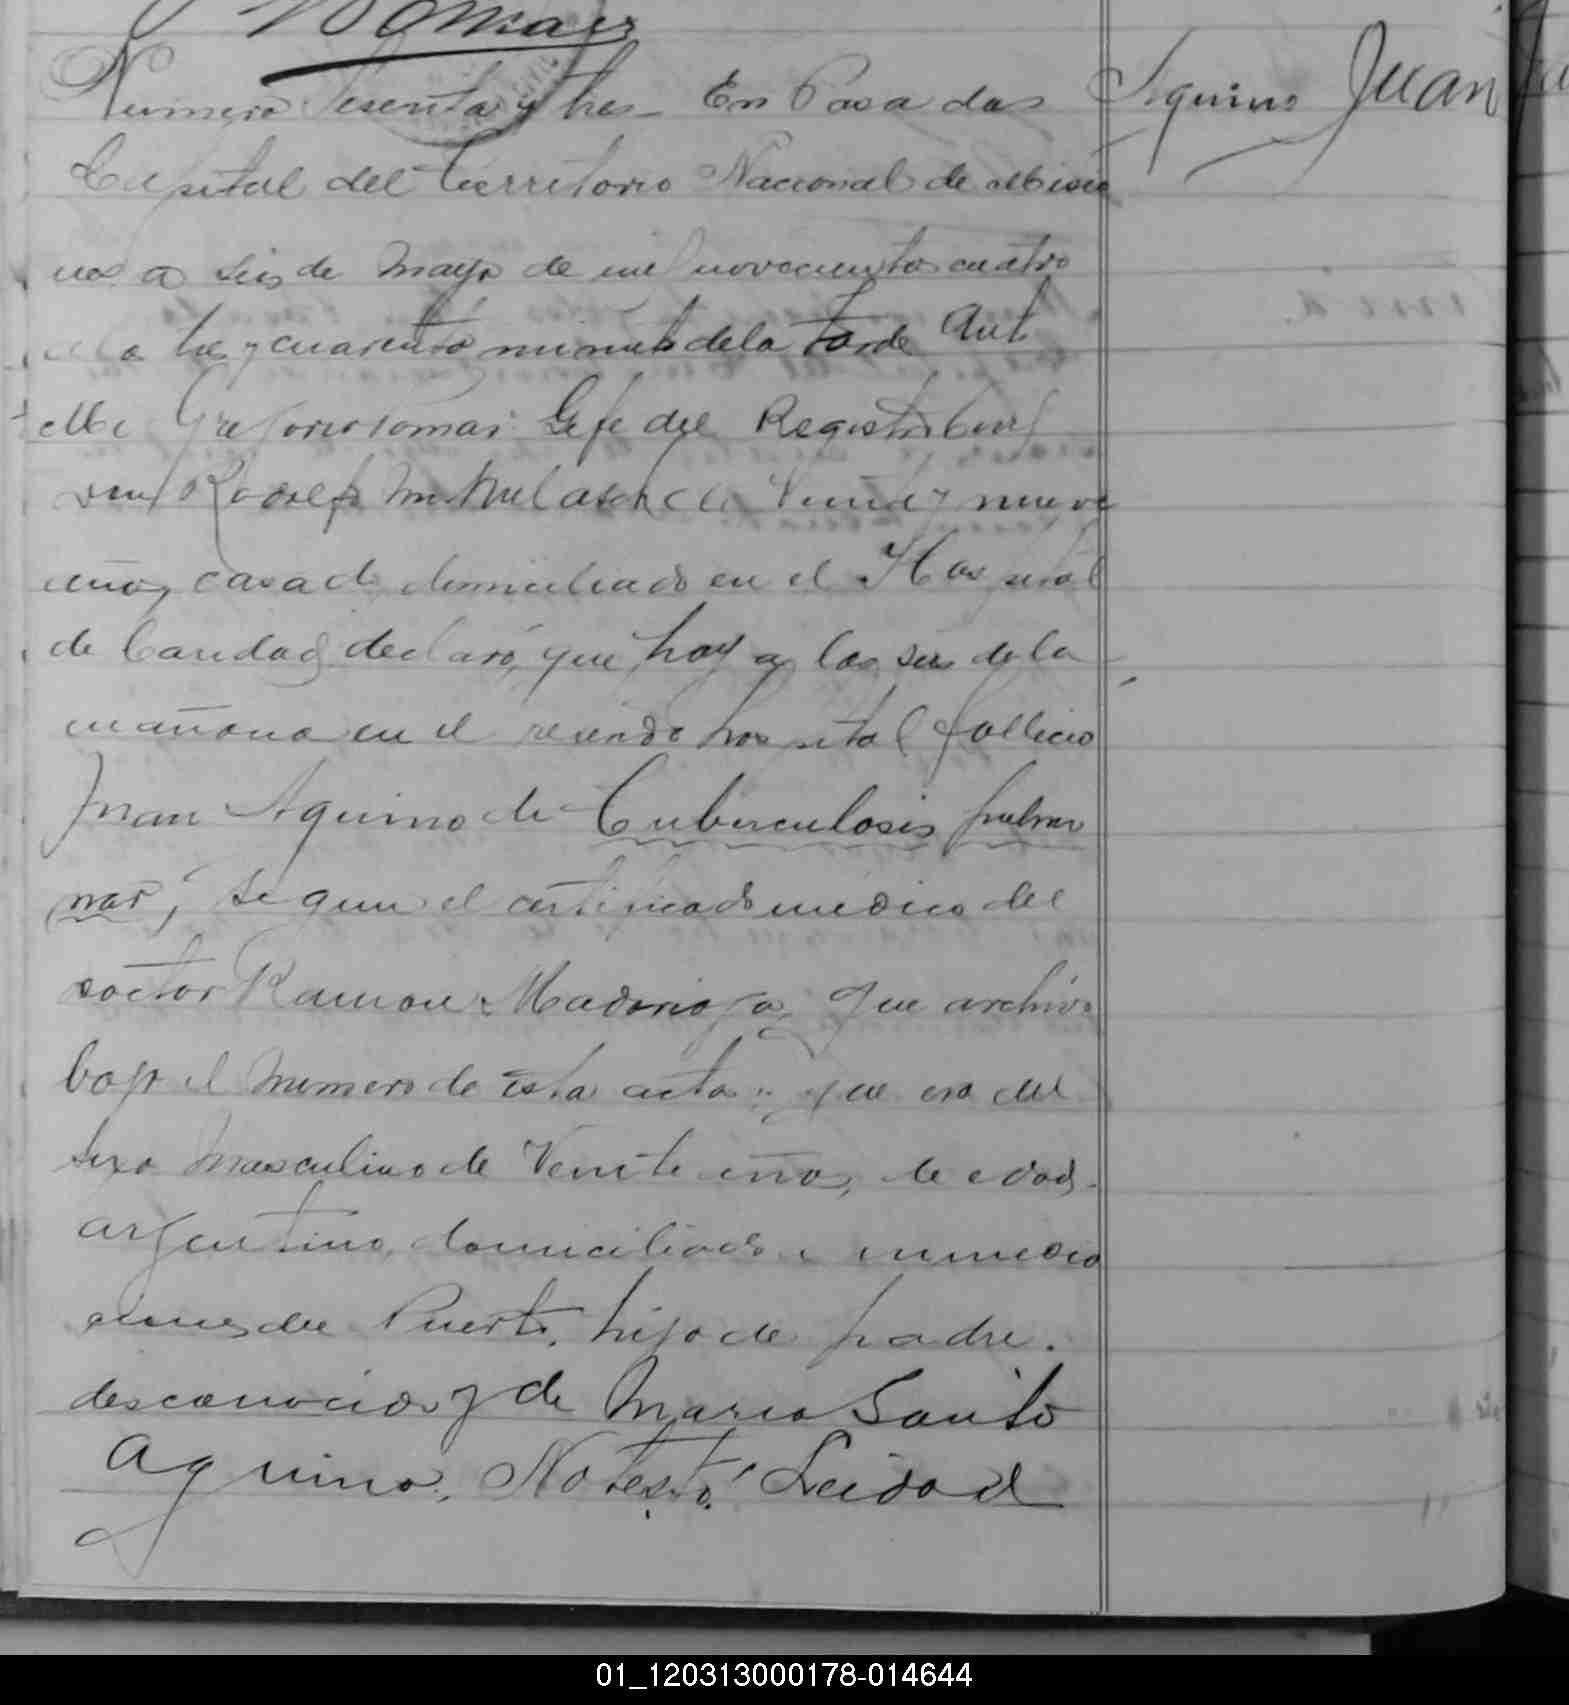 Numero Sesenta y tres En Posadas
Aquino Juan
Capital del Territorio Nacional de Misio
nes a seis de Mayo de mil novecientos cuatro
a la tres y cuarenta minutos de la tarde Ante
Mi Gregorio Gefe del Registro Civil
don Rodolfo de Veinte y nueve
años, casado domiciliado en el Hospital
de Caridad, declaró, que hoy a las seis de la
mañana en el hospital fallecio
Juan Aquino de Tuberculosis pulmo
nar, segun el certificado medico del
doctor Ramon Madariaga, que archivo
bajo el numero de esta acta; que era del
sexo Masculino de Veinte años, de edad
argentino, domiciliado inmedia
del Puerto, hijo de padre
desconocido y de Maria Santo
Aquino, No testó. Leida el
01_120313000178-014644